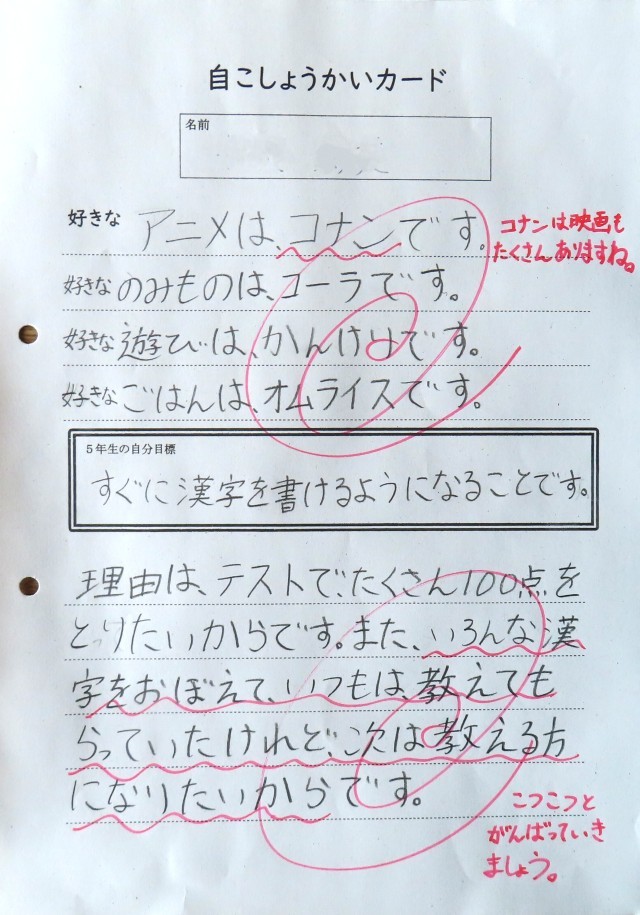 自こしょうかいカード
名前
好きな アニメは、コナンです。
コナンは映画も
たくさんありますね。
好きな のみものは、コーラです。
好きな 遊びは、かんけりです。
好きな ごはんは、オムライスです。
5年生の自分目標
すぐに漢字を書けるようになることです。
理由は、テストで、たくさん100点を
とりたいからです。また、いろんな漢
字をおぼえて、いつもは、教えても
らっていたけれど、次は教える方
になりたいからです。
こつこつと
がんばっていき
ましょう。